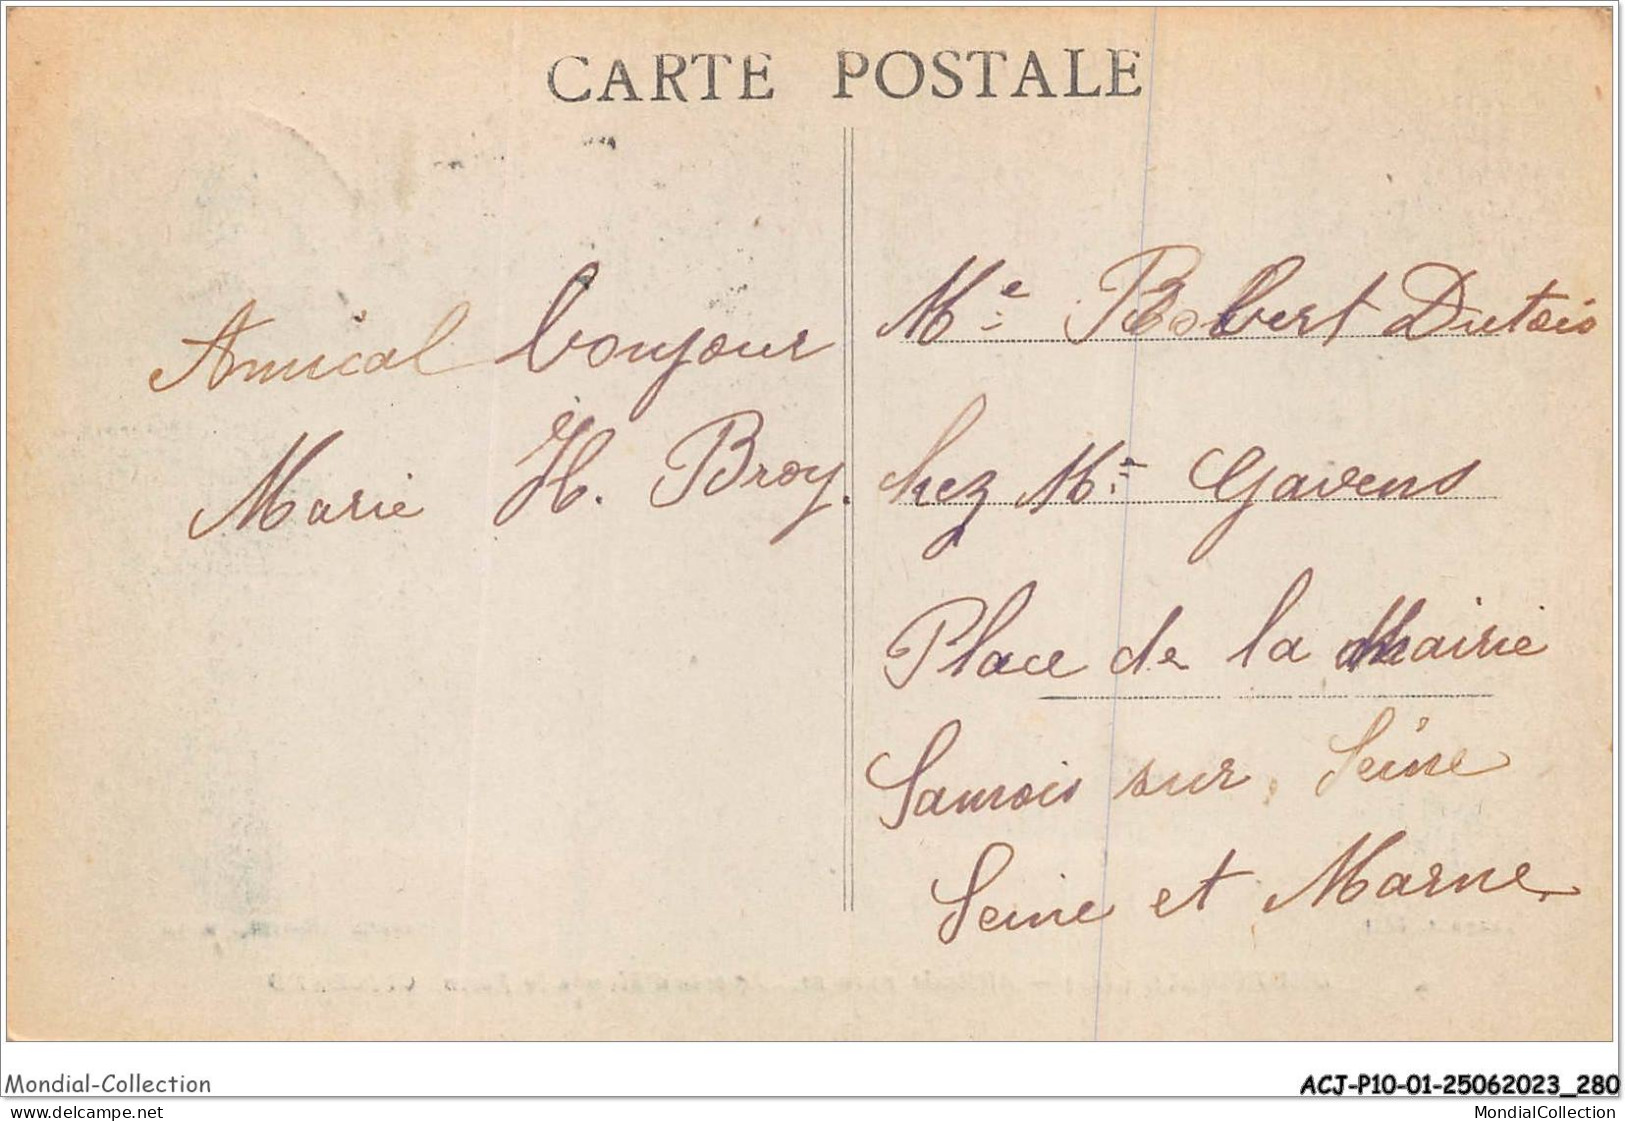 CARTE POSTALE
Amical bonjour
Marie H. Broy.
Me Robert Dutois
chez Me Gavens
Place de la Mairie
Samois sur Seine
Seine et Marne
Mondial-Collection
ACJ-P10-01-25062023_280
MondialCollection